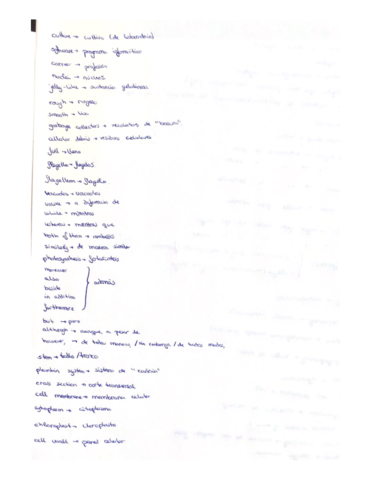 culture → cultivo (de laboratorio)
software → programa informático
career → profesión
nuclei → núcleos
jelly-like → sustancia gelatinosa
rough → rugoso
smooth → liso
garbage collectors → recolectores de "basura"
cellular debris → residuos celulares
full → lleno
flagella → flagelos
flagellum → flagelo
vacuoles → vacuolas
unlike → a diferencia de
while → mientras
whereas → mientras que
both of them → ambos
similarly → de manera similar
photosynthesis → fotosíntesis
moreover
also
beside
in addition
furthermore
} además
but → pero
although → aunque, a pesar de
however, → de todas maneras, / sin embargo / de todos modos,
stem → tallo / tronco
plumbing system → sistema de
cross section → corte transversal
cell membrane → membrana celular
cytoplasm → citoplasma
chloroplast → cloroplasto
cell wall → pared celular